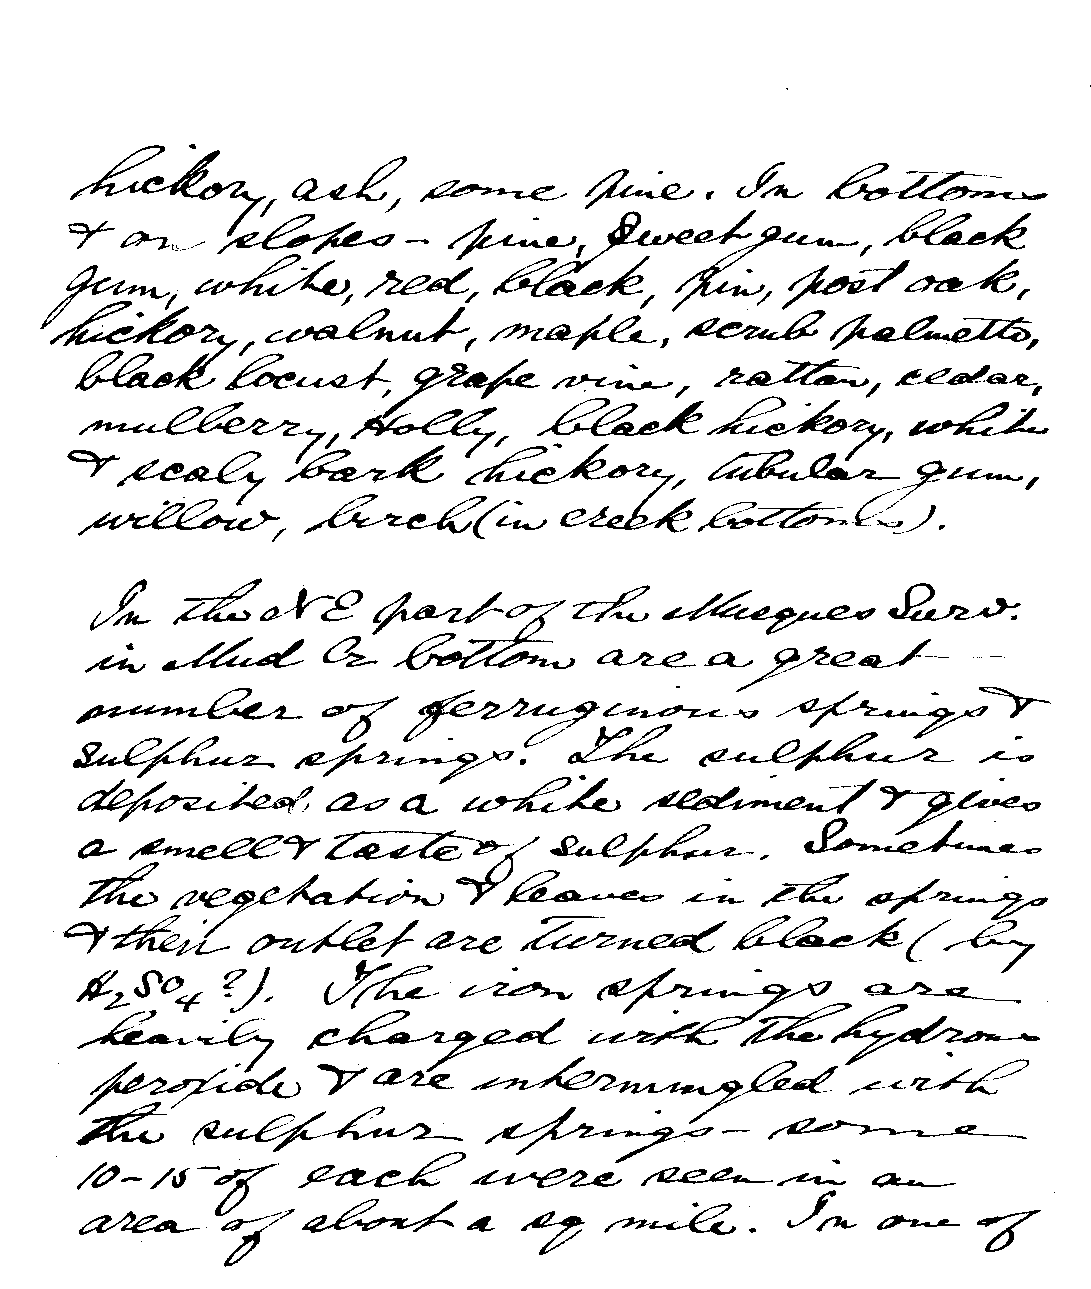 hickory, ash, some pine. In bottoms
& on slopes - pine, Sweet gum, black
gum, white, red, black, pin, post oak,
hickory, walnut, maple, scrub palmetto,
black locust, grape vine, rattan, cedar,
mulberry, Holly, black hickory, white
& scaly bark hickory, tubular gum,
willow, birch (in creek bottoms).
In the NE part of the Musques Surv.
in Mud Cr bottom are a great
number of ferruginous springs &
sulphur springs. The sulphur is
deposited as a white sediment & gives
a smell & taste of sulphur. Sometimes
the vegetation & leaves in the springs
& their outlet are turned black (by
H2SO4?). The iron springs are
heavily charged with the hydrous
peroxide & are intermingled with
the sulphur springs - some
10-15 of each were seen in an
area of about a sq mile. In one of